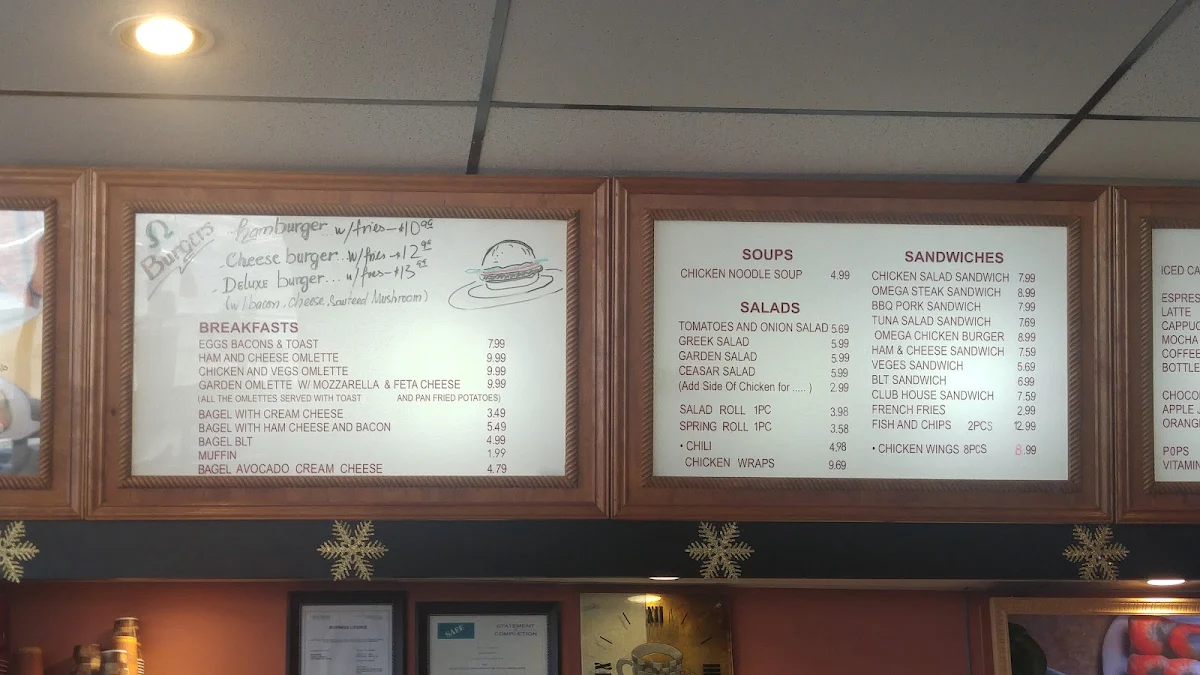 Ω
Burgers
hamburger w/fries - $10.99
Cheese burger.. w/fries - $12.99
Deluxe burger... w/fries - $13.99
(w/bacon, cheese, Sauteed Mushroom)
BREAKFASTS
EGGS BACONS & TOAST 7.99
HAM AND CHEESE OMLETTE 9.99
CHICKEN AND VEGS OMLETTE 9.99
GARDEN OMLETTE W/ MOZZARELLA & FETA CHEESE 9.99
(ALL THE OMLETTES SERVED WITH TOAST AND PAN FRIED POTATOES)
BAGEL WITH CREAM CHEESE 3.49
BAGEL WITH HAM CHEESE AND BACON 5.49
BAGEL BLT 4.99
MUFFIN 1.99
BAGEL AVOCADO CREAM CHEESE 4.79
SOUPS
CHICKEN NOODLE SOUP 4.99
SALADS
TOMATOES AND ONION SALAD 5.69
GREEK SALAD 5.99
GARDEN SALAD 5.99
CEASAR SALAD 5.99
(Add Side Of Chicken for ..... ) 2.99
SALAD ROLL 1PC 3.98
SPRING ROLL 1PC 3.58
• CHILI 4.98
CHICKEN WRAPS 9.69
SANDWICHES
CHICKEN SALAD SANDWICH 7.99
OMEGA STEAK SANDWICH 8.99
BBQ PORK SANDWICH 7.99
TUNA SALAD SANDWICH 7.69
OMEGA CHICKEN BURGER 8.99
HAM & CHEESE SANDWICH 7.59
VEGES SANDWICH 5.69
BLT SANDWICH 6.99
CLUB HOUSE SANDWICH 7.59
FRENCH FRIES 2.99
FISH AND CHIPS 2PCS 12.99
• CHICKEN WINGS 8PCS 8.99
ICED CA
ESPRES
LATTE
CAPPUC
MOCHA
COFFEE
BOTTLE
CHOCO
APPLE
ORANG
POPS
VITAMIN
SAFE
STATEMENT
COMPLETION